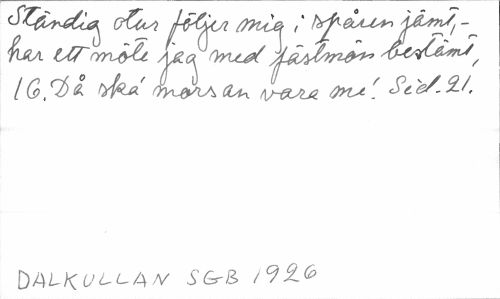 Ständig otur följer mig i spåren jämt,-
har ett möte jag med fästmön bestämt,
16. Då ska' morsan vara me'! Sid. 21.
DALKULLAN SGB 1926